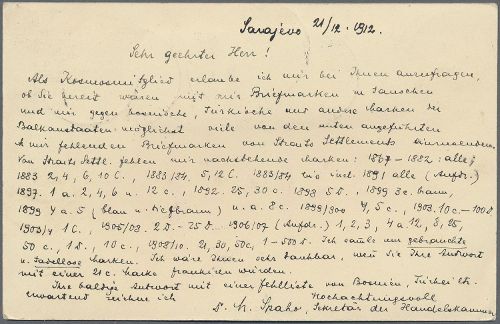 Sarajevo 21/12.1912.
Sehr geehrter Herr!
Als Kosmosmitglied erlaube ich mir bei Ihnen anzufragen,
ob Sie bereit wären mit mir Briefmarken zu tauschen
und mir gegen bosnische, Türkische und andere Marken der
Balkanstaaten möglichst viele von den unten angeführten
mir fehlenden Briefmarken von Straits Settlements einzusenden.
Von Straits Settl. fehlen mir nachstehende Marken: 1867-1882: alle,
1883 2, 4, 6, 10 C., 1883/84. 5, 12 C. 1883/84 bis incl. 1891 alle (Aufdr.)
1892. 1 a. 2, 4, 6 u. 12 c., 1892. 25, 30 c. 1898 5 D., 1899 3c. braun,
1899 4 a. 5 (blau u. tiefbraun) u. a. 8 c. 1899/900 4, 5 c., 1903. 10 c.-100 D
1903/4 1 C., 1905/03. 2 D.-25 D. 1906/07 (Aufdr.) 1, 2, 3, 4 a 12, 5, 25,
50 c., 1 D., 10 c., 1908/10. 21, 30, 50c, 1-500 D. Ich sammle nur gebrauchte
u. tadellose Marken. Ich wäre Ihnen sehr dankbar, wenn Sie Ihre Antwort
mit einer 21 c. Marke frankieren würden.
Ihre baldige Antwort mit einer Fehlliste von Bosnien, Türkei etc.
erwartend zeichne ich Hochachtungsvoll
M. Spaho, Sekretär der Handelskammer